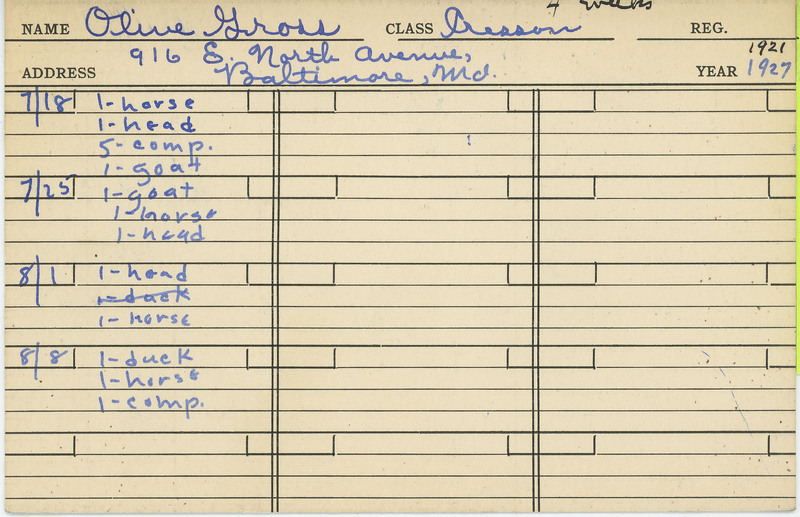 4 weeks
NAME Olive Gross CLASS Cresson REG.
916 E. North Avenue, 1921
ADDRESS Baltimore, Md. YEAR 1927
7/18 1-horse
1-head
5-comp.
1-goat
7/25 1-goat
1-horse
1-head
8/1 1-head
1-duck
1-horse
8/8 1-duck
1-horse
1-comp.